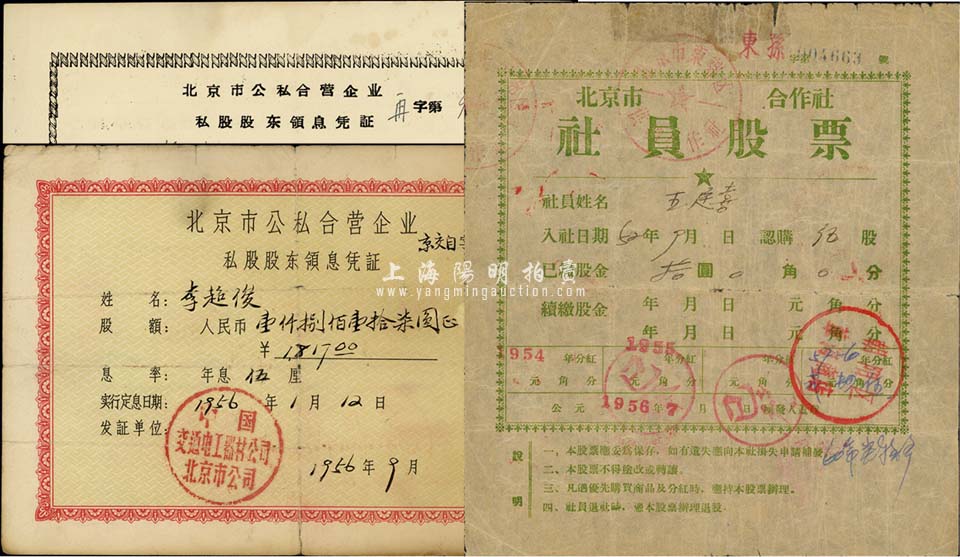 北京市公私合营企业
私股股东领息凭证
字第
北京市公私合营企业
私股股东领息凭证
京交自字
姓 名: 李超俊
股 额: 人民币 壹仟捌佰壹拾柒圆正
¥ 1817.00
息 率: 年息伍厘
实行定息日期: 1956年1月12日
发证单位:
中国
交通电工器材公司
北京市公司
1956年9月
上海陽明拍賣
www.yangmingauction.com
東 字第 004663 號
北京市 合作社
社員股票
社員姓名
入社日期 年9月 日 認購 伍 股
已 股金 拾圓0角0分
續繳股金 年 月 日 元 角 分
年 月 日 元 角 分
1954 年分紅 1955 年分紅 年分紅 年分紅
元 角 分 元 角 分 元 角 分
公元 1956年7月 日
說明
一、本股票應妥爲保存,如有遺失應向本社掛失申請補發
二、本股票不得塗改或轉讓。
三、凡遇優先購買商品及分紅時,應持本股票辦理。
四、社員退社時,應本股票辦理退股。